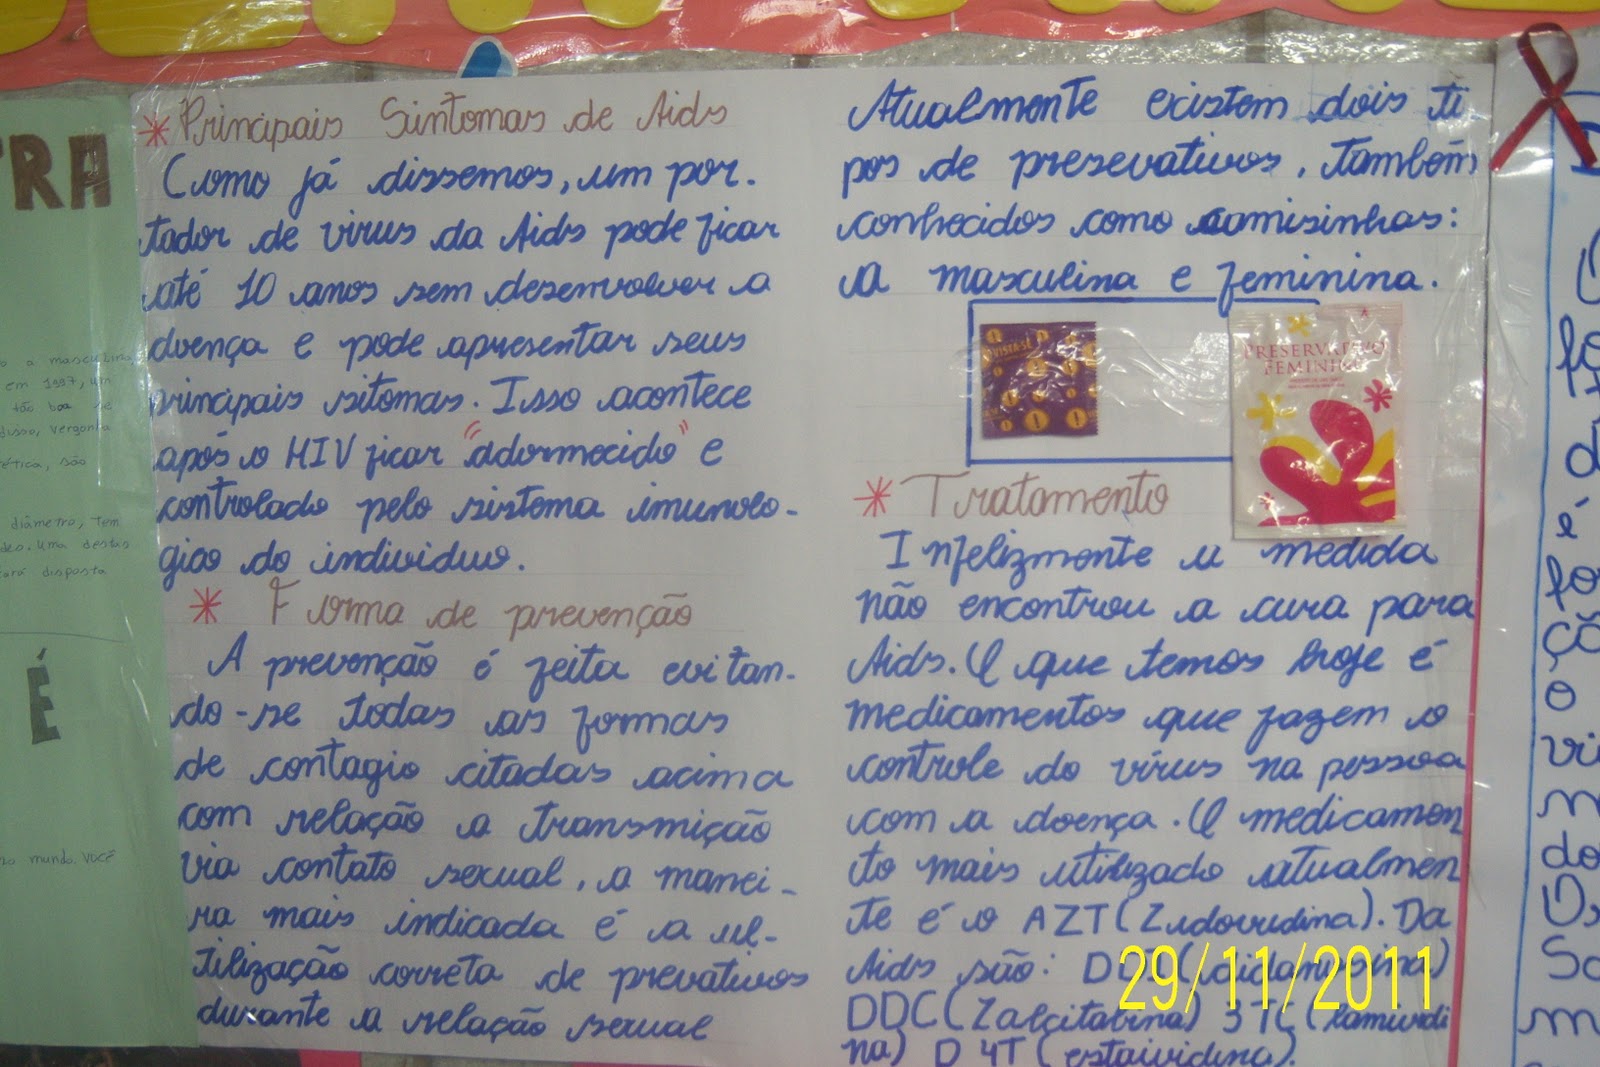 TRA
o a masculina,
em 1997, um
tão boa
vergonha
são
diâmetro, tem
Uma destas
disposta
É
mundo. Você
Principais Sintomas de Aids
Como já dissemos, um por-
tador de virus da Aids pode ficar
até 10 anos sem desenvolver a
doença e pode apresentar seus
principais sitomas. Isso acontece
após o HIV ficar "adormecido" e
controlado pelo sistema imunolo-
gico do individuo.
Forma de prevenção
A prevenção é feita evitan-
do-se todas as formas
de contagio citadas acima
com relação a transmição
via contato sexual, a manei-
ra mais indicada é a u-
tilização correta de prevativos
durante a relação sexual
Atualmente existem dois ti
pos de presevativos, também
conhecidos como camisinhas:
a masculina e feminina.
VISTA-SE
PRESERVATIVO
FEMININO
Tratamento
Infelizmente a medida
não encontrou a cura para
Aids. O que temos hoje é
medicamentos que fazem o
controle do vírus na pessoa
com a doença. O medicamen
to mais utilizado atualmen
te é o AZT (Zidovudina). Da
Aids são:
DDC (Zalcitabina) 3TC (lamivudi
na) D4T (estaividina).
29/11/2011
é
o